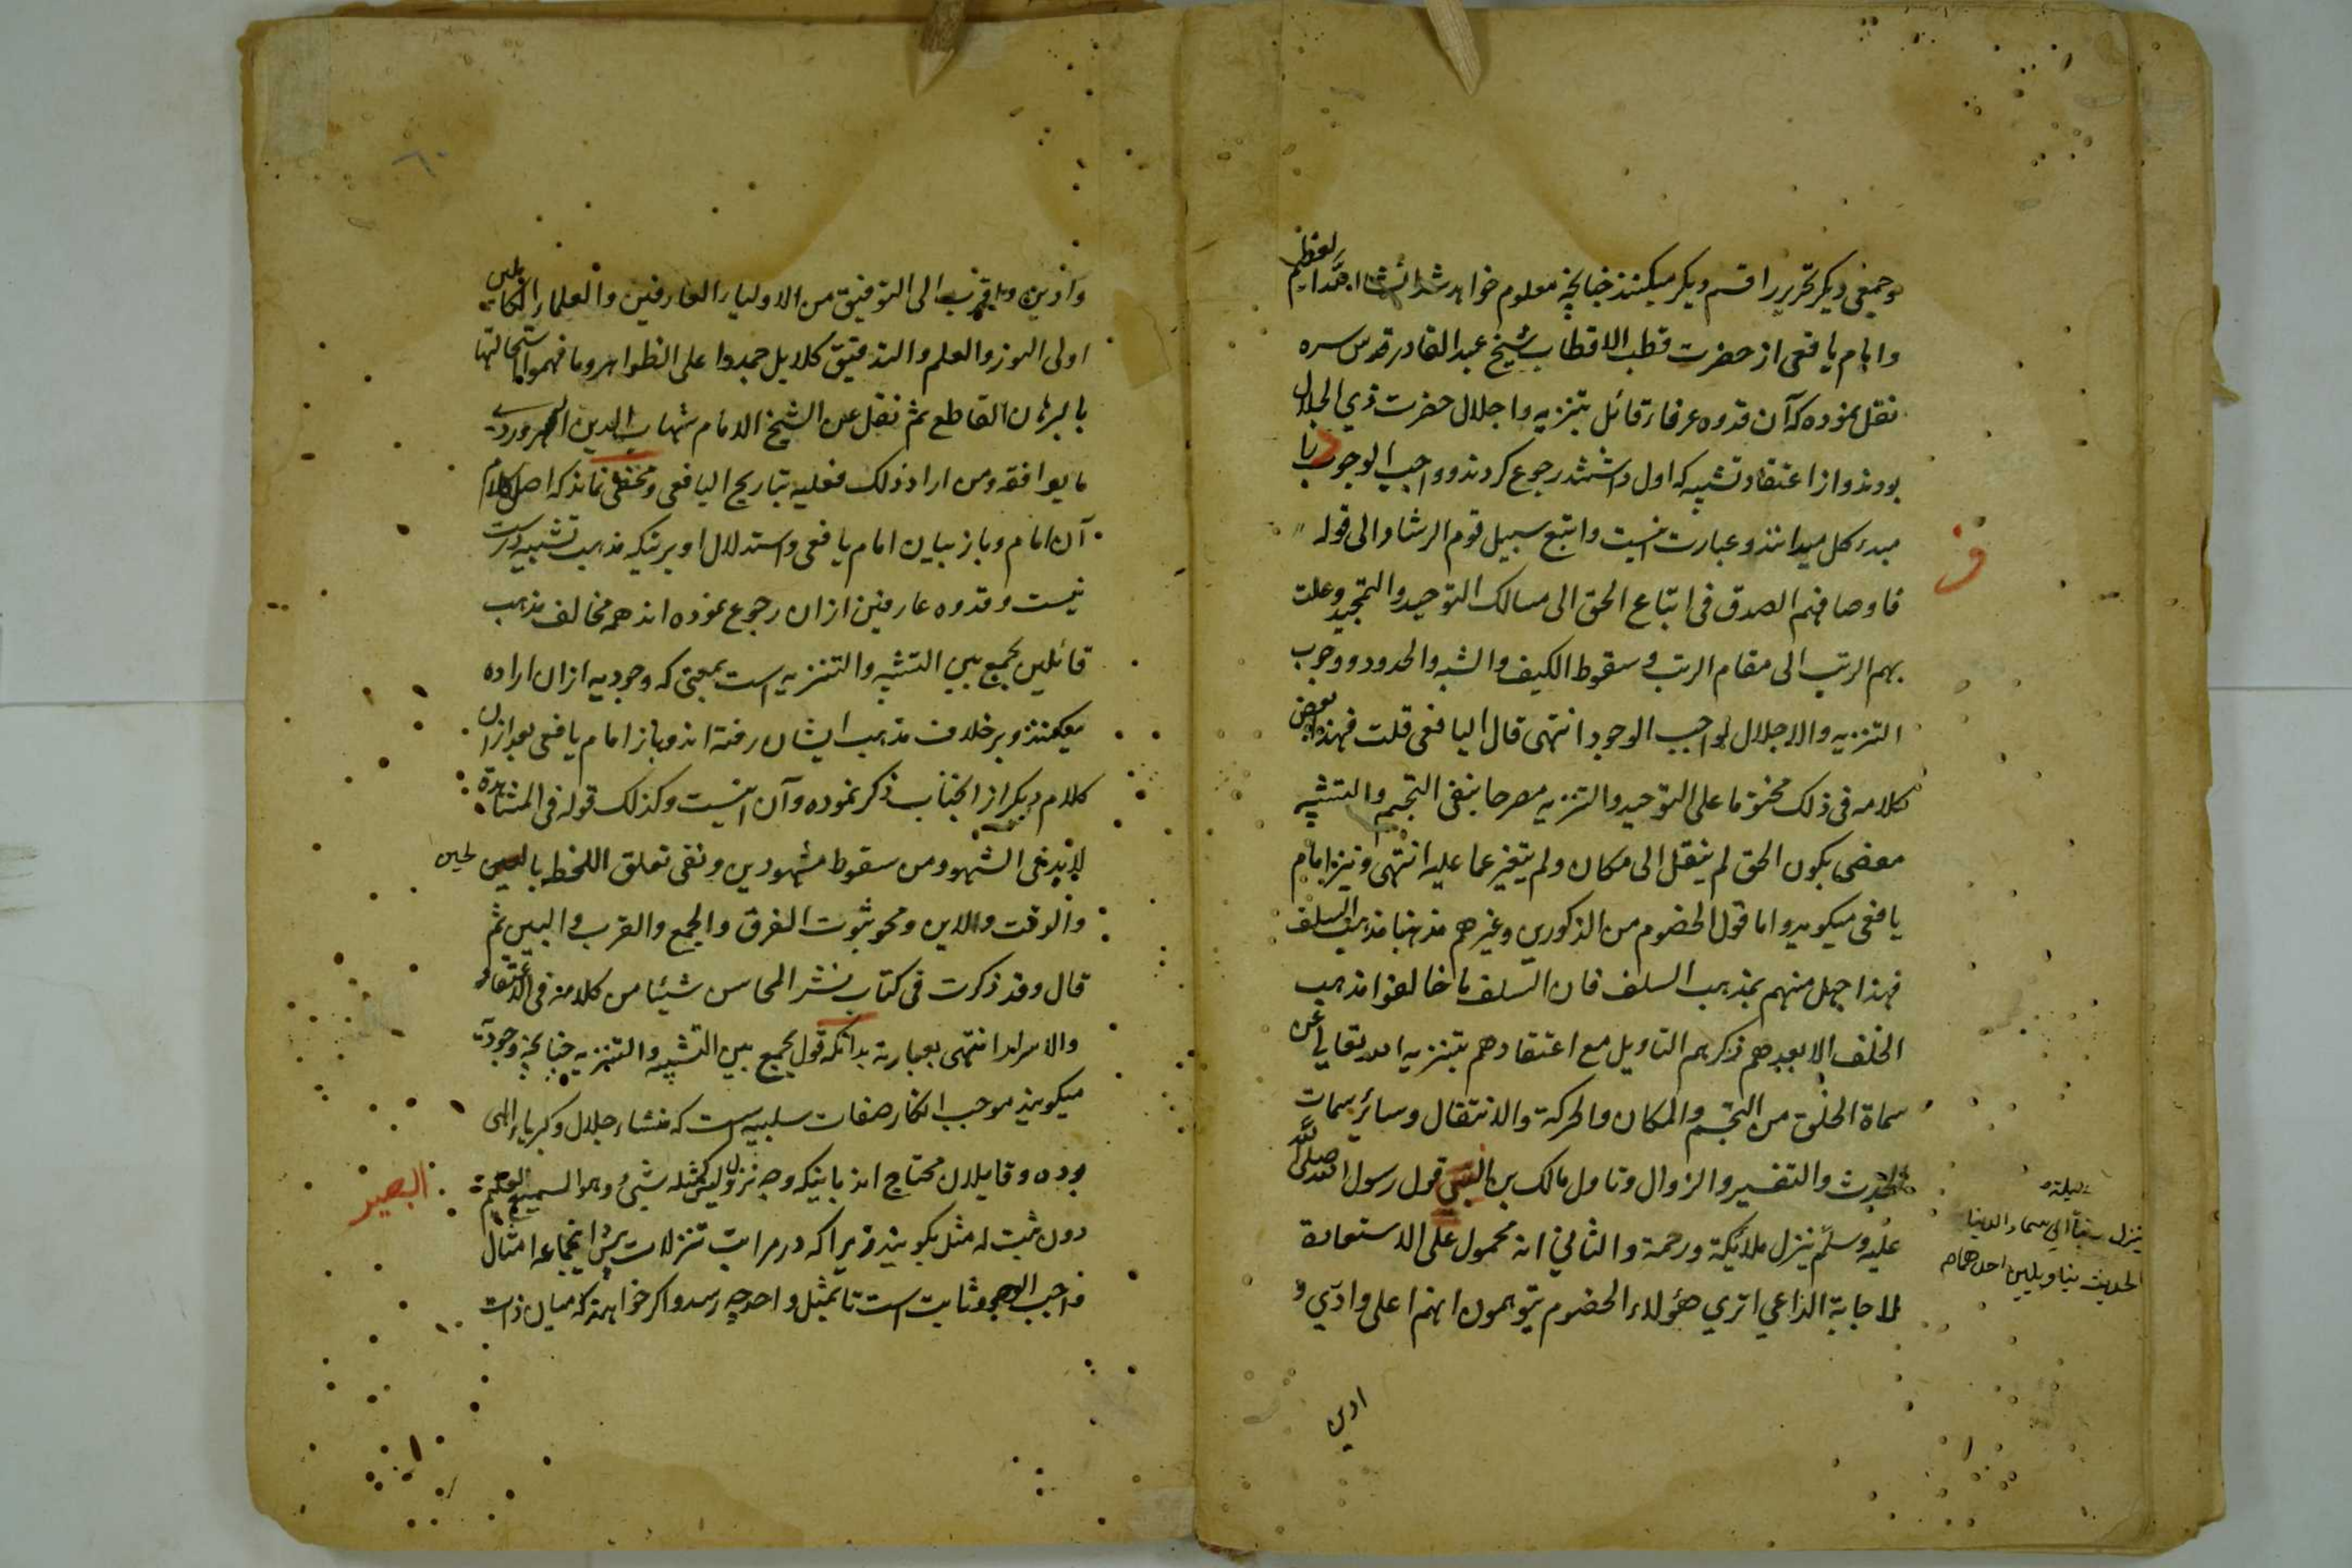 وجمعی دیکر تحریر را قسم دیکر میکنند چنانچه معلوم خواهد شد انشاء الله العظیم
وامام یافعی از حضرت قطب الاقطاب شیخ عبد القادر قدس سره
نقل نموده که آن قدوه عرفا قائل بتنزیه واجلال حضرت ذی الجلال
بودند واز اعتقاد تشبیه که اول داشتند رجوع کردند وواجب الوجوب را
مبدء کل میدانند وعبارت اینست واتبع سبیل قوم الرشاد الی قوله
فاوصافهم الصدق فی اتباع الحق الی مسالک التوحید والتمجید وعلت
بهم الرتب الی مقام الرتب وسقوط الکیف والشبه والحدود ووجوب
التنزیه والاجلال لواجب الوجود انتهی قال الیافعی قلت فهذا بعض
کلامه فی ذلک مختوما علی التوحید والتنزیه مصرحا بنفی التجسم والتشبیه
معنی بکون الحق لم ینتقل الی مکان ولم یتغیر عما علیه انتهی ونیز امام
یافعی میکوید واما قول الخصوم من الذکورین وغیرهم مذهبنا مذهب السلف
فهذا جهل منهم بمذهب السلف فان السلف ما خالفوا مذهب
الخلف الا بعدهم ذکرهم التاویل مع اعتقادهم بتنزیه الله تعالی عن
سماة الخلق من التجسم والمکان والحرکة والانتقال وسائر سمات
الحدث والتغییر والزوال وتاول مالک بن انس قول رسول الله صلی الله
علیه وسلم ینزل ملائکة ورحمة والثانی انه محمول علی الاستعارة
للاجابة الداعی اتری هؤلاء الخصوم یتوهمون انهم اعلی وادی و
ف
لیلة
ینزل ربنا الی سماء الدنیا
الحدیث بتاویلین احدهما
ادین
٦٠
وادین واقرب الی التوفیق من الاولیاء العارفین والعلماء الکاملین
اولی النور والعلم والتدقیق کلا بل جمدوا علی الظواهر وما فهموا استحالتها
بالبرهان القاطع ثم نقل عن الشیخ الامام شهاب الدین السهروردی
ما یوافقه ومن اراد ذلک فعلیه بتاریخ الیافعی ومخفی نماند که اصل کلام
آن امام وباز بیان امام یافعی واستدلال او برینکه مذهب تشبیه درست
نیست وقدوه عارفین ازان رجوع نموده اند همه مخالف مذهب
قائلین بجمع بین التشبیه والتنزیه است بمعنی که وجودیه ازان اراده
میکنند وبر خلاف مذهب ایشان رفته اند وباز امام یافعی بعد ازان
کلام دیکر از انجناب ذکر نموده وآن اینست وکذلک قوله فی المشاهدة
لا بد فی الشهود من سقوط مشهودین ونفی تعلق اللحظ بالحین
والوقت والاین ومحو ثبوت الفرق والجمع والقرب والبین ثم
قال وقد ذکرت فی کتاب نشر المحاسن شیئا من کلامه فی الاعتقاد
والاسرار انتهی بعبارته بدانکه قول بجمع بین التشبیه والتنزیه چنانچه وجودیة
میکویند موجب انکار صفات سلبیه است که منشاء جلال وکبریاء الهی
بوده وقایلان محتاج اند باینکه وجه نزول لیس کمثله شیء وهو السمیع العلیم
دون ثبت له مثل بکویند زیرا که در مراتب تنزلات پیش اینجماعه امثال
واجب الوجود ثابت است تا بمثل واحد چه رسد واکر خواهند که میان ذات
البصیر
لحین